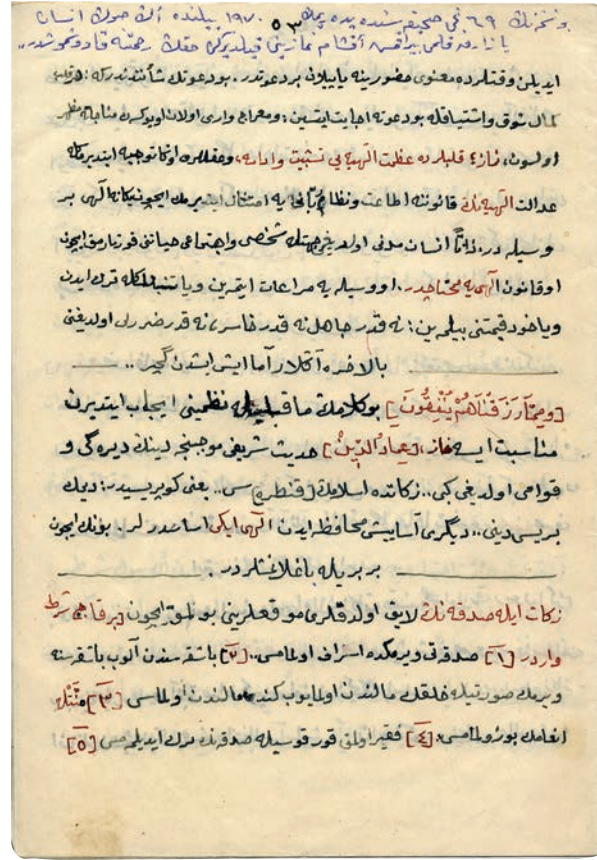 بو نخه‌نك ٦٩ نجی صحیفه سنده یده یمان ١٩٧٠ ییلنده الك صوك انسان
٥٣
یازارده قلمی بیراقمش آقشام نمازینی قیلدیركن حقك رحمتنه قاووشمشدر..
ایدیلن وقتلرده معنوی حضورینه یاپیلان بر دعوتدر. بو دعوتك شأنندندركه: هر قلب
كمال شوق واشتیاقله بو دعوته اجابت ایتسین؛ ومعراج واری اولان او یوكسك مناجاته مظهر
اولسون، نماز؛ قلبلرده عظمت الهیه‌یی تثبیت وادامه، وعقللری اوكا توجیه ایتدیرمكله
عدالت الهیه‌نك قانوننه اطاعت ونظام ربانی‌یه امتثال ایتدیرمك ایچون یكانه الهی بر
وسیله در. ذاتًا انسان مدنی اولدیغی جهتله شخصی واجتماعی حیاتنی قورتارمق ایچون
او قانون الهی‌یه محتاجدر. او وسیله‌یه مراعات ایتمه‌ین ویا تنبللكله ترك ایدن
ویاخود قیمتنی بیلمه‌ین؛ نه قدر جاهل نه قدر خاسر، نه قدر ضررلی اولدیغنی
بالاخره آكلار اما ایش ایشدن گچر ..
[وَمِمَّا رَزَقْنَاهُمْ يُنْفِقُونَ] بو كلامك ماقبلیله نظمنی ایجاب ایتدیرن
مناسبت ایسه نماز، [عِمَادُ الدِّينْ] حدیث شریفی موجبنجه دینك دیره‌گی و
قوامی اولدیغی كبی.. زكاتده اسلامك [قنطره] سی.. یعنی كوپریسیدر؛ دیمك
بریسی دینی.. دیگری آسایشی محافظه ایدن الهی ایكی اساسدرلر. بونك ایچون
بربریله باغلانمشلردر .
زكات ایله صدقه‌نك لایق اولدقلری موقعلرینی بولمق ایچون [بر قاچ شرط
واردر] [١] صدقه‌یی ویرمكده اسراف اولمامسی.. [٢] باشقه‌سندن آلوب باشقه‌سنه
ویرمك صورتیله خلقك مالندن اولمایوب كندی مالندن اولماسی [٣] منتله
انعامك بوزولمامسی. [٤] فقیر اولمق قورقوسیله صدقه‌نك ترك ایدیلمه‌مسی [٥]